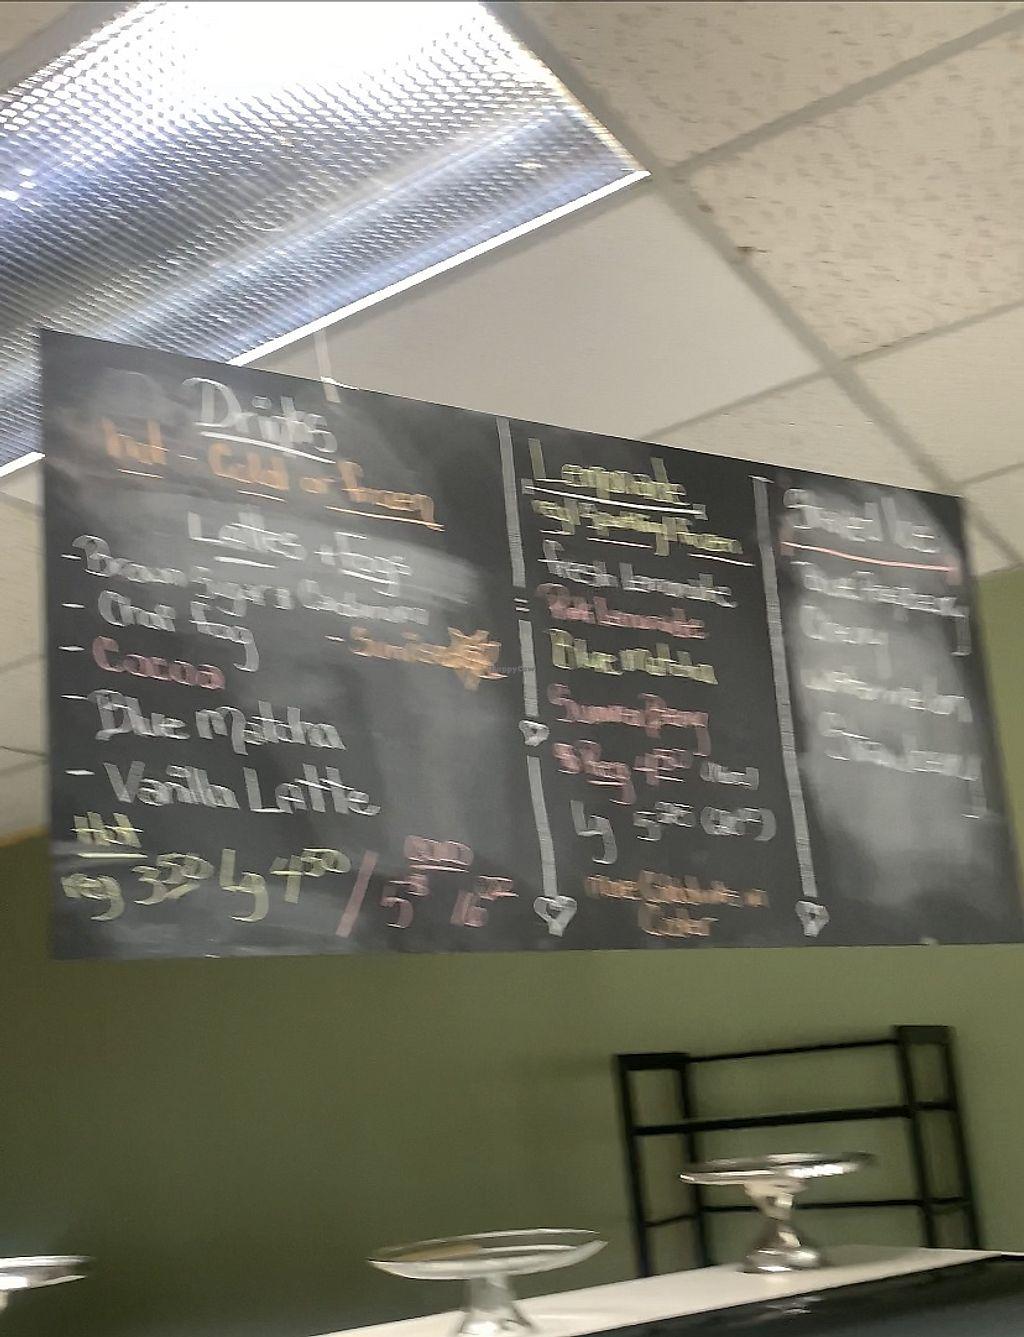 Drinks
Hot - Cold or Frozen
Lattes + Fogs
- Brown Sugar & Cardamom
- Chai Fog
- Cocoa
- Blue Matcha
- Vanilla Latte
Hot
reg 3.50 Lg 4.50 / 5
Lemonade
reg/ Sparkling/ Frozen
Fresh Lemonade
Pink Lemonade
Blue Matcha
Summer Berry
Reg 4
Lg 5
Shaved Ice
Blue Raspberry
Cherry
watermelon
Strawberry